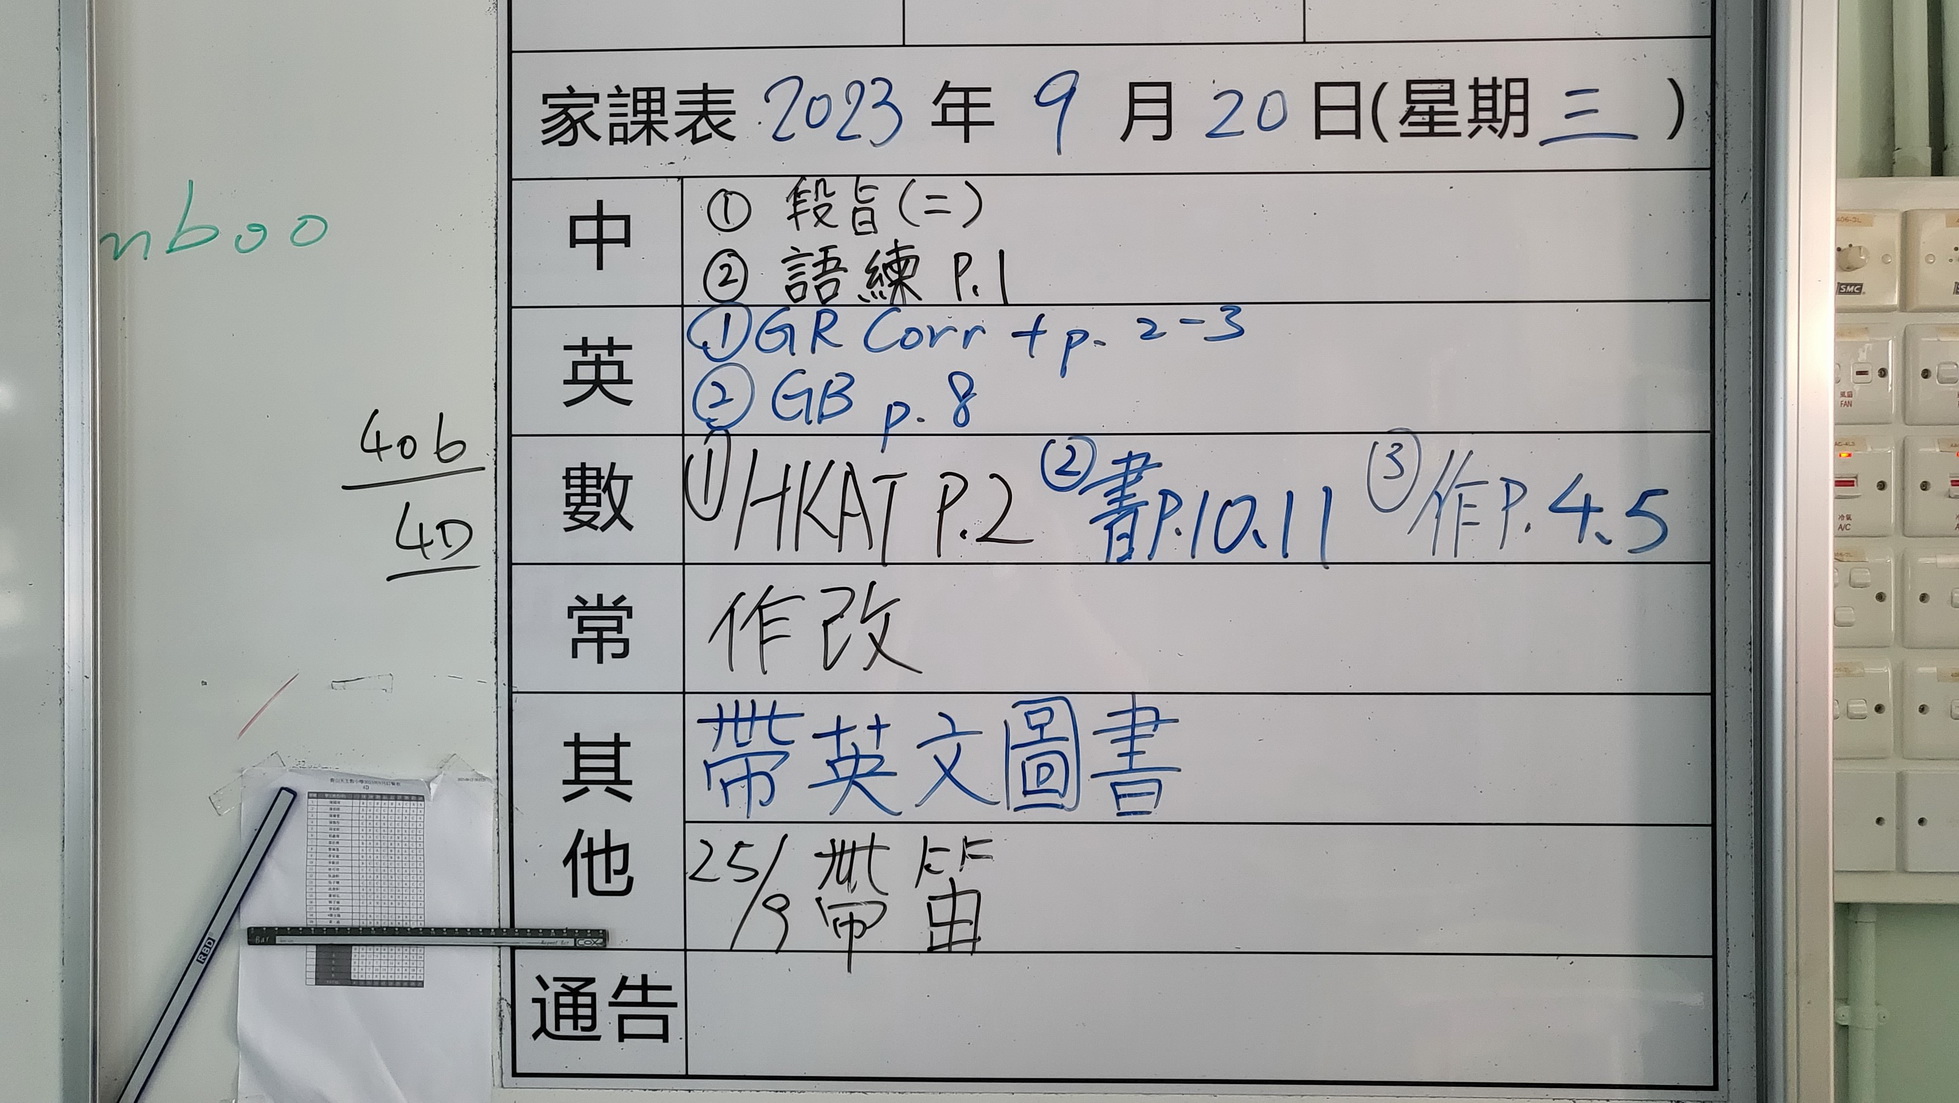 家課表 2023 年 9 月 20 日(星期三)
中
① 段旨(二)
② 語練 P.1
英
① GR Corr + p. 2-3
② GB p. 8
數
① HKAT P.2 ② 書P.10、11 ③ 作P.4、5
常
作改
其他
帶英文圖書
25/9 帶笛
通告
nboo
406
4D
RBD
COX
SMC
風扇
FAN
冷氣
A/C